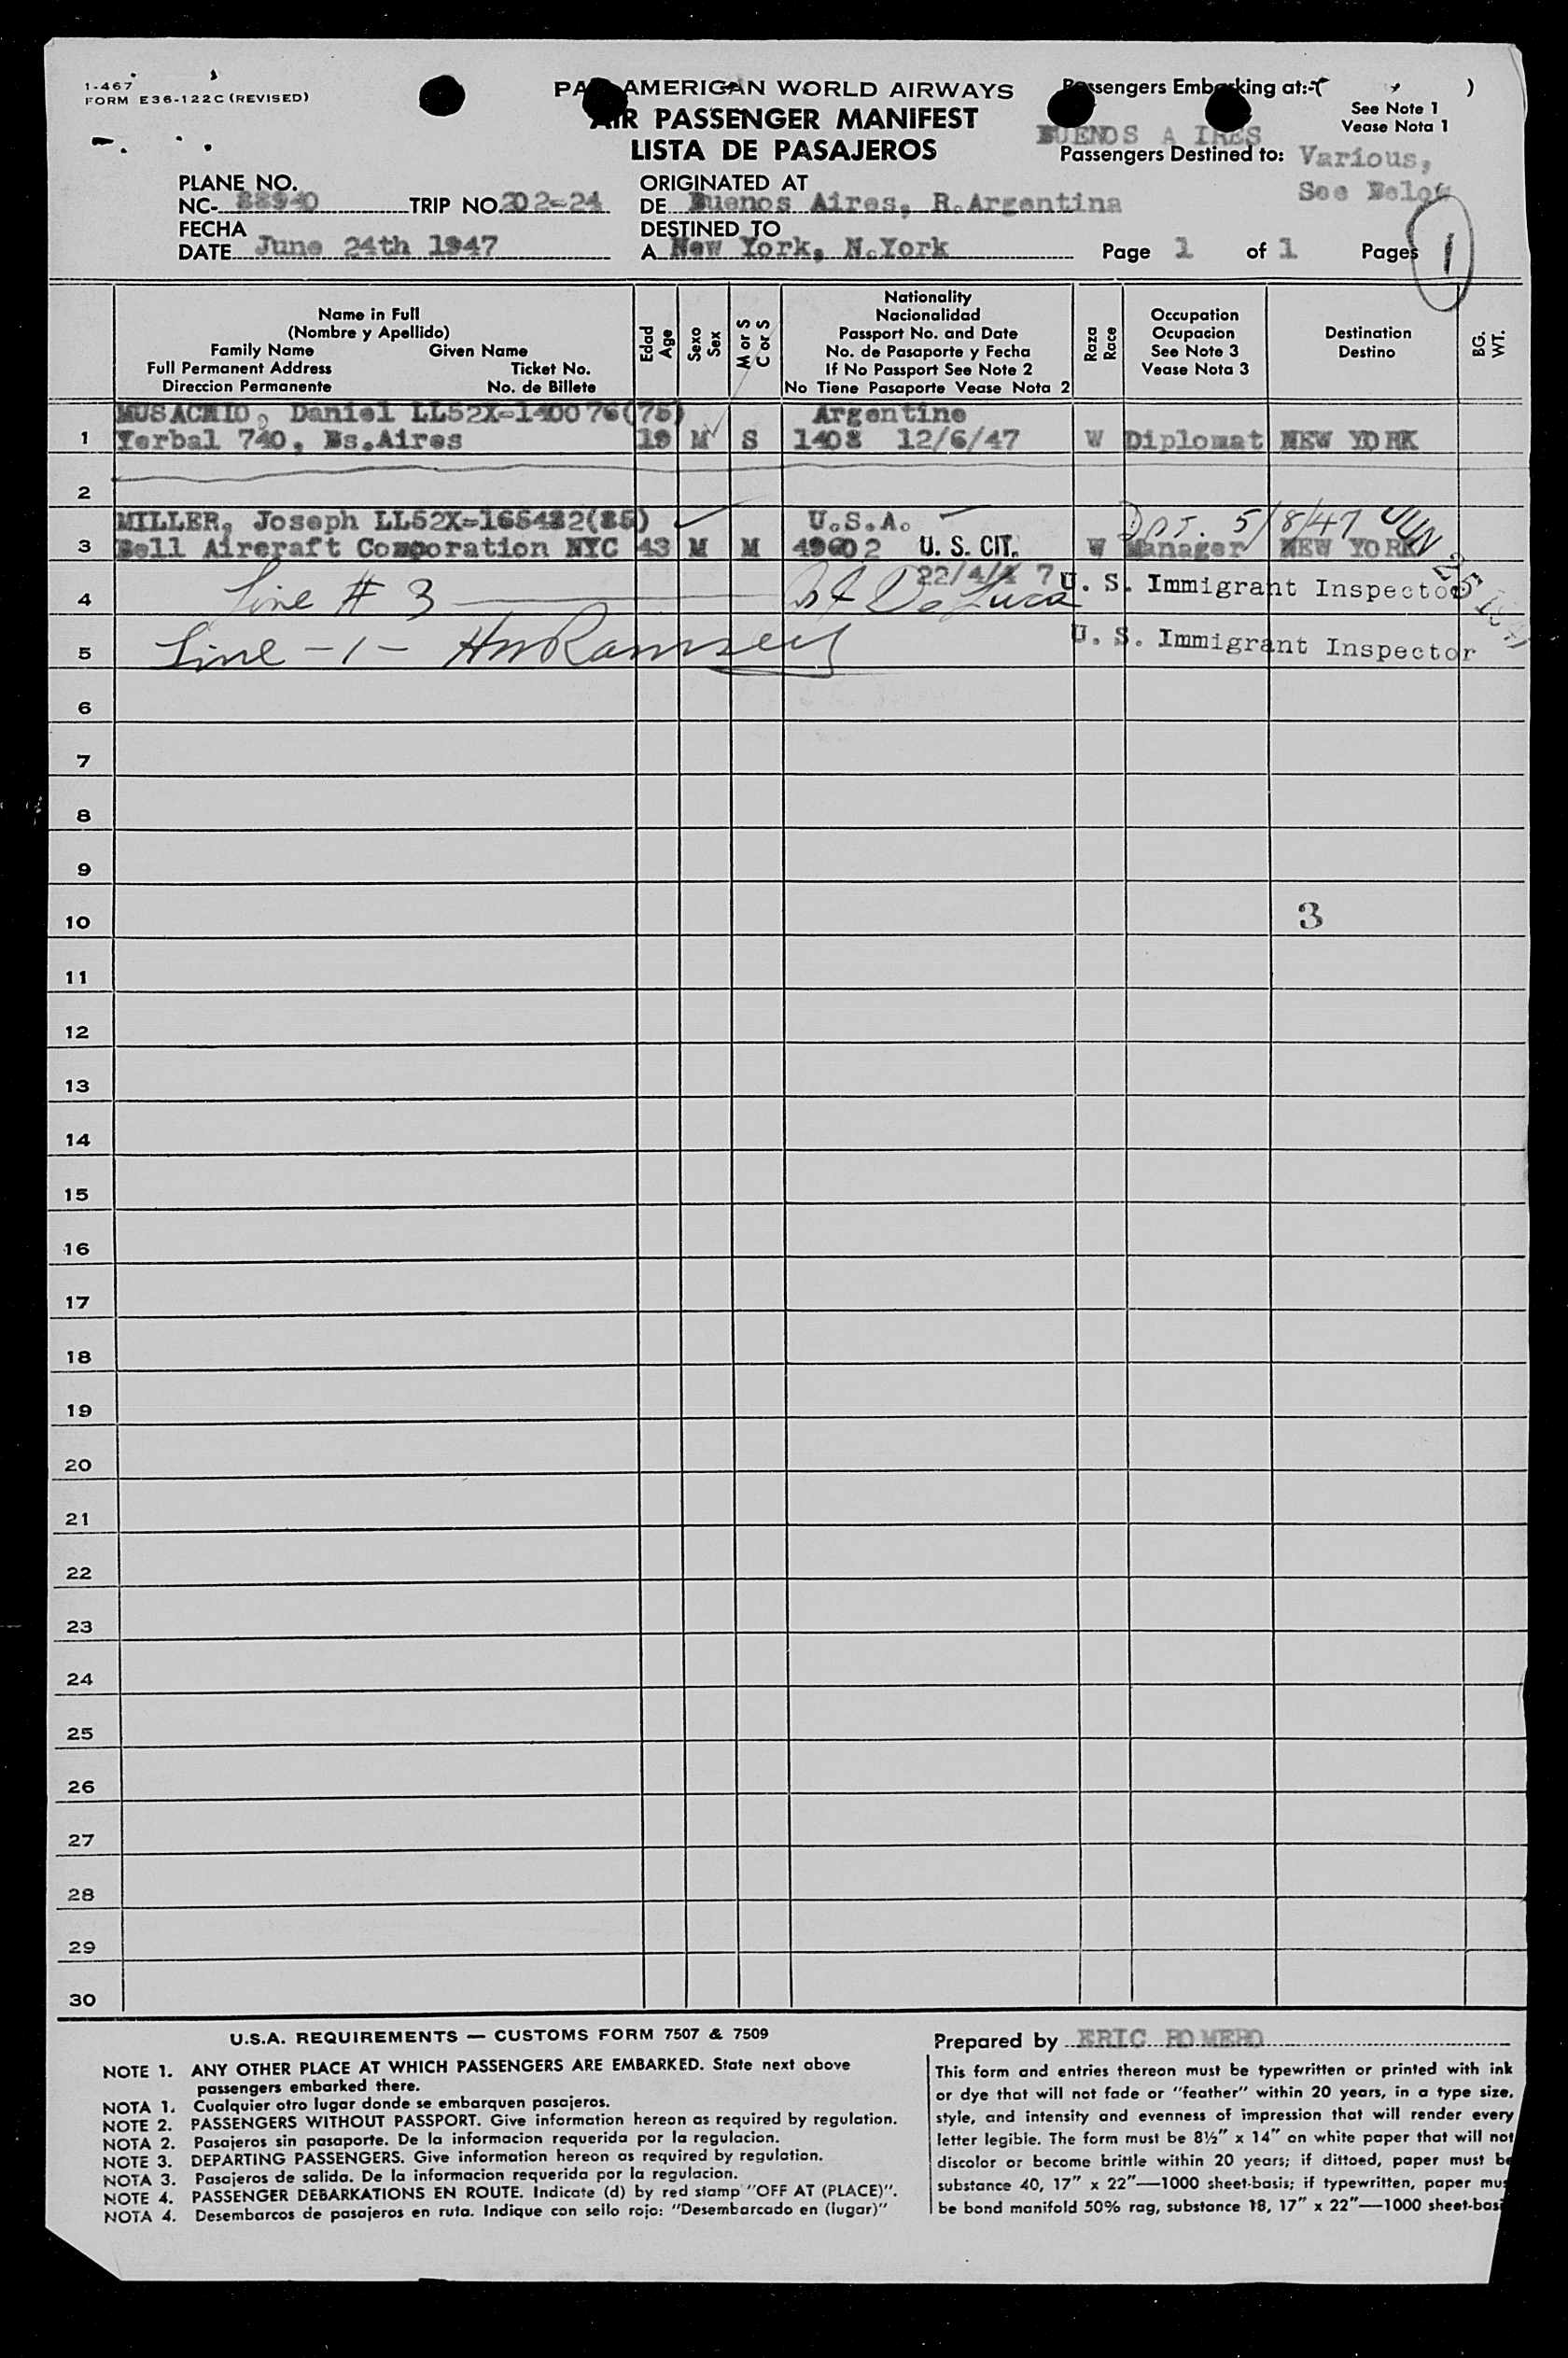 1-467
FORM E36-122C (REVISED)
PAN AMERICAN WORLD AIRWAYS
AIR PASSENGER MANIFEST
LISTA DE PASAJEROS
Passengers Embarking at:-( )
See Note 1
Vease Nota 1
BUENOS AIRES
Passengers Destined to: Various,
See Below
PLANE NO.
NC- 88940 TRIP NO. 202-24
FECHA
DATE June 24th 1947
ORIGINATED AT
DE Buenos Aires, R.Argentina
DESTINED TO
A New York, N.York
Page 1 of 1 Pages
1
Name in Full
(Nombre y Apellido)
Family Name Given Name
Full Permanent Address Ticket No.
Direccion Permanente No. de Billete
Edad
Age
Sexo
Sex
M or S
C or S
Nationality
Nacionalidad
Passport No. and Date
No. de Pasaporte y Fecha
If No Passport See Note 2
No Tiene Pasaporte Vease Nota 2
Raza
Race
Occupation
Ocupacion
See Note 3
Vease Nota 3
Destination
Destino
BG.
WT.
MUSACHIO, Daniel LL52X-140076(75) Argentine
1 Yerbal 740, Bs.Aires 19 M S 1408 12/6/47 W Diplomat NEW YORK
2
MILLER, Joseph LL52X-165482(85) U.S.A. 5/8/47 JUN 25
3 Bell Aircraft Corporation NYC 43 M M 49602 U. S. CIT. W Manager NEW YORK
22/4/47
4 Line # 3 De Luca U. S. Immigrant Inspector
5 Line -1- HW Ramsey U. S. Immigrant Inspector
6
7
8
9
10 3
11
12
13
14
15
16
17
18
19
20
21
22
23
24
25
26
27
28
29
30
U.S.A. REQUIREMENTS — CUSTOMS FORM 7507 & 7509
NOTE 1. ANY OTHER PLACE AT WHICH PASSENGERS ARE EMBARKED. State next above
passengers embarked there.
NOTA 1. Cualquier otro lugar donde se embarquen pasajeros.
NOTE 2. PASSENGERS WITHOUT PASSPORT. Give information hereon as required by regulation.
NOTA 2. Pasajeros sin pasaporte. De la informacion requerida por la regulacion.
NOTE 3. DEPARTING PASSENGERS. Give information hereon as required by regulation.
NOTA 3. Pasajeros de salida. De la informacion requerida por la regulacion.
NOTE 4. PASSENGER DEBARKATIONS EN ROUTE. Indicate (d) by red stamp "OFF AT (PLACE)".
NOTA 4. Desembarcos de pasajeros en ruta. Indique con sello rojo: "Desembarcado en (lugar)"
Prepared by ERIC ROMERO
This form and entries thereon must be typewritten or printed with ink
or dye that will not fade or "feather" within 20 years, in a type size,
style, and intensity and evenness of impression that will render every
letter legible. The form must be 8½" x 14" on white paper that will not
discolor or become brittle within 20 years; if dittoed, paper must be
substance 40, 17" x 22"—1000 sheet-basis; if typewritten, paper mus
be bond manifold 50% rag, substance 18, 17" x 22"—1000 sheet-basi